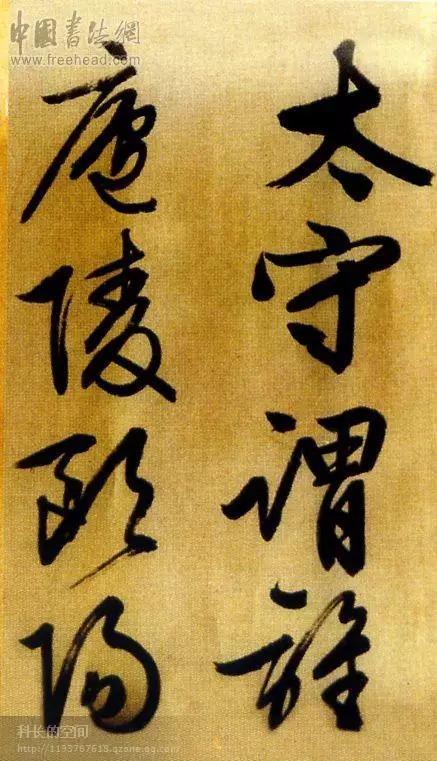 太守謂誰
廬陵歐陽
中國書法網
www.freehead.com
科长的空间
http://1193767618.qzone.qq.com